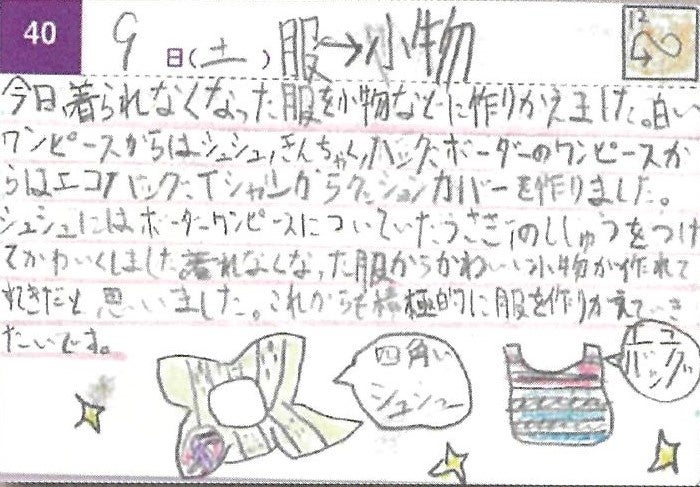 40
9日(土) 服→小物
12
今日着られなくなった服を小物などに作りかえました。白い
ワンピースからはシュシュ,きんちゃく,バッグ、ボーダーのワンピースか
らはエコバッグ、Tシャツからクッションカバーを作りました。
シュシュにはボーダーワンピースについていたうさぎのししゅうをつけ
てかわいくしました。着れなくなった服からかわいい小物が作れて
すてきだと思いました。これからも積極的に服を作りかえていき
たいです。
四角い
シュシュ
エコ
バッグ